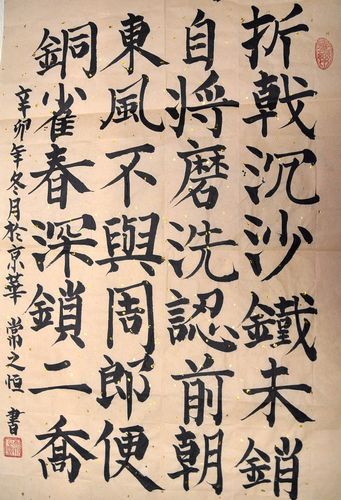 折戟沉沙鐵未銷
自将磨洗認前朝
東風不與周郎便
銅雀春深鎖二喬
辛卯年冬月於京華 常之恒 書